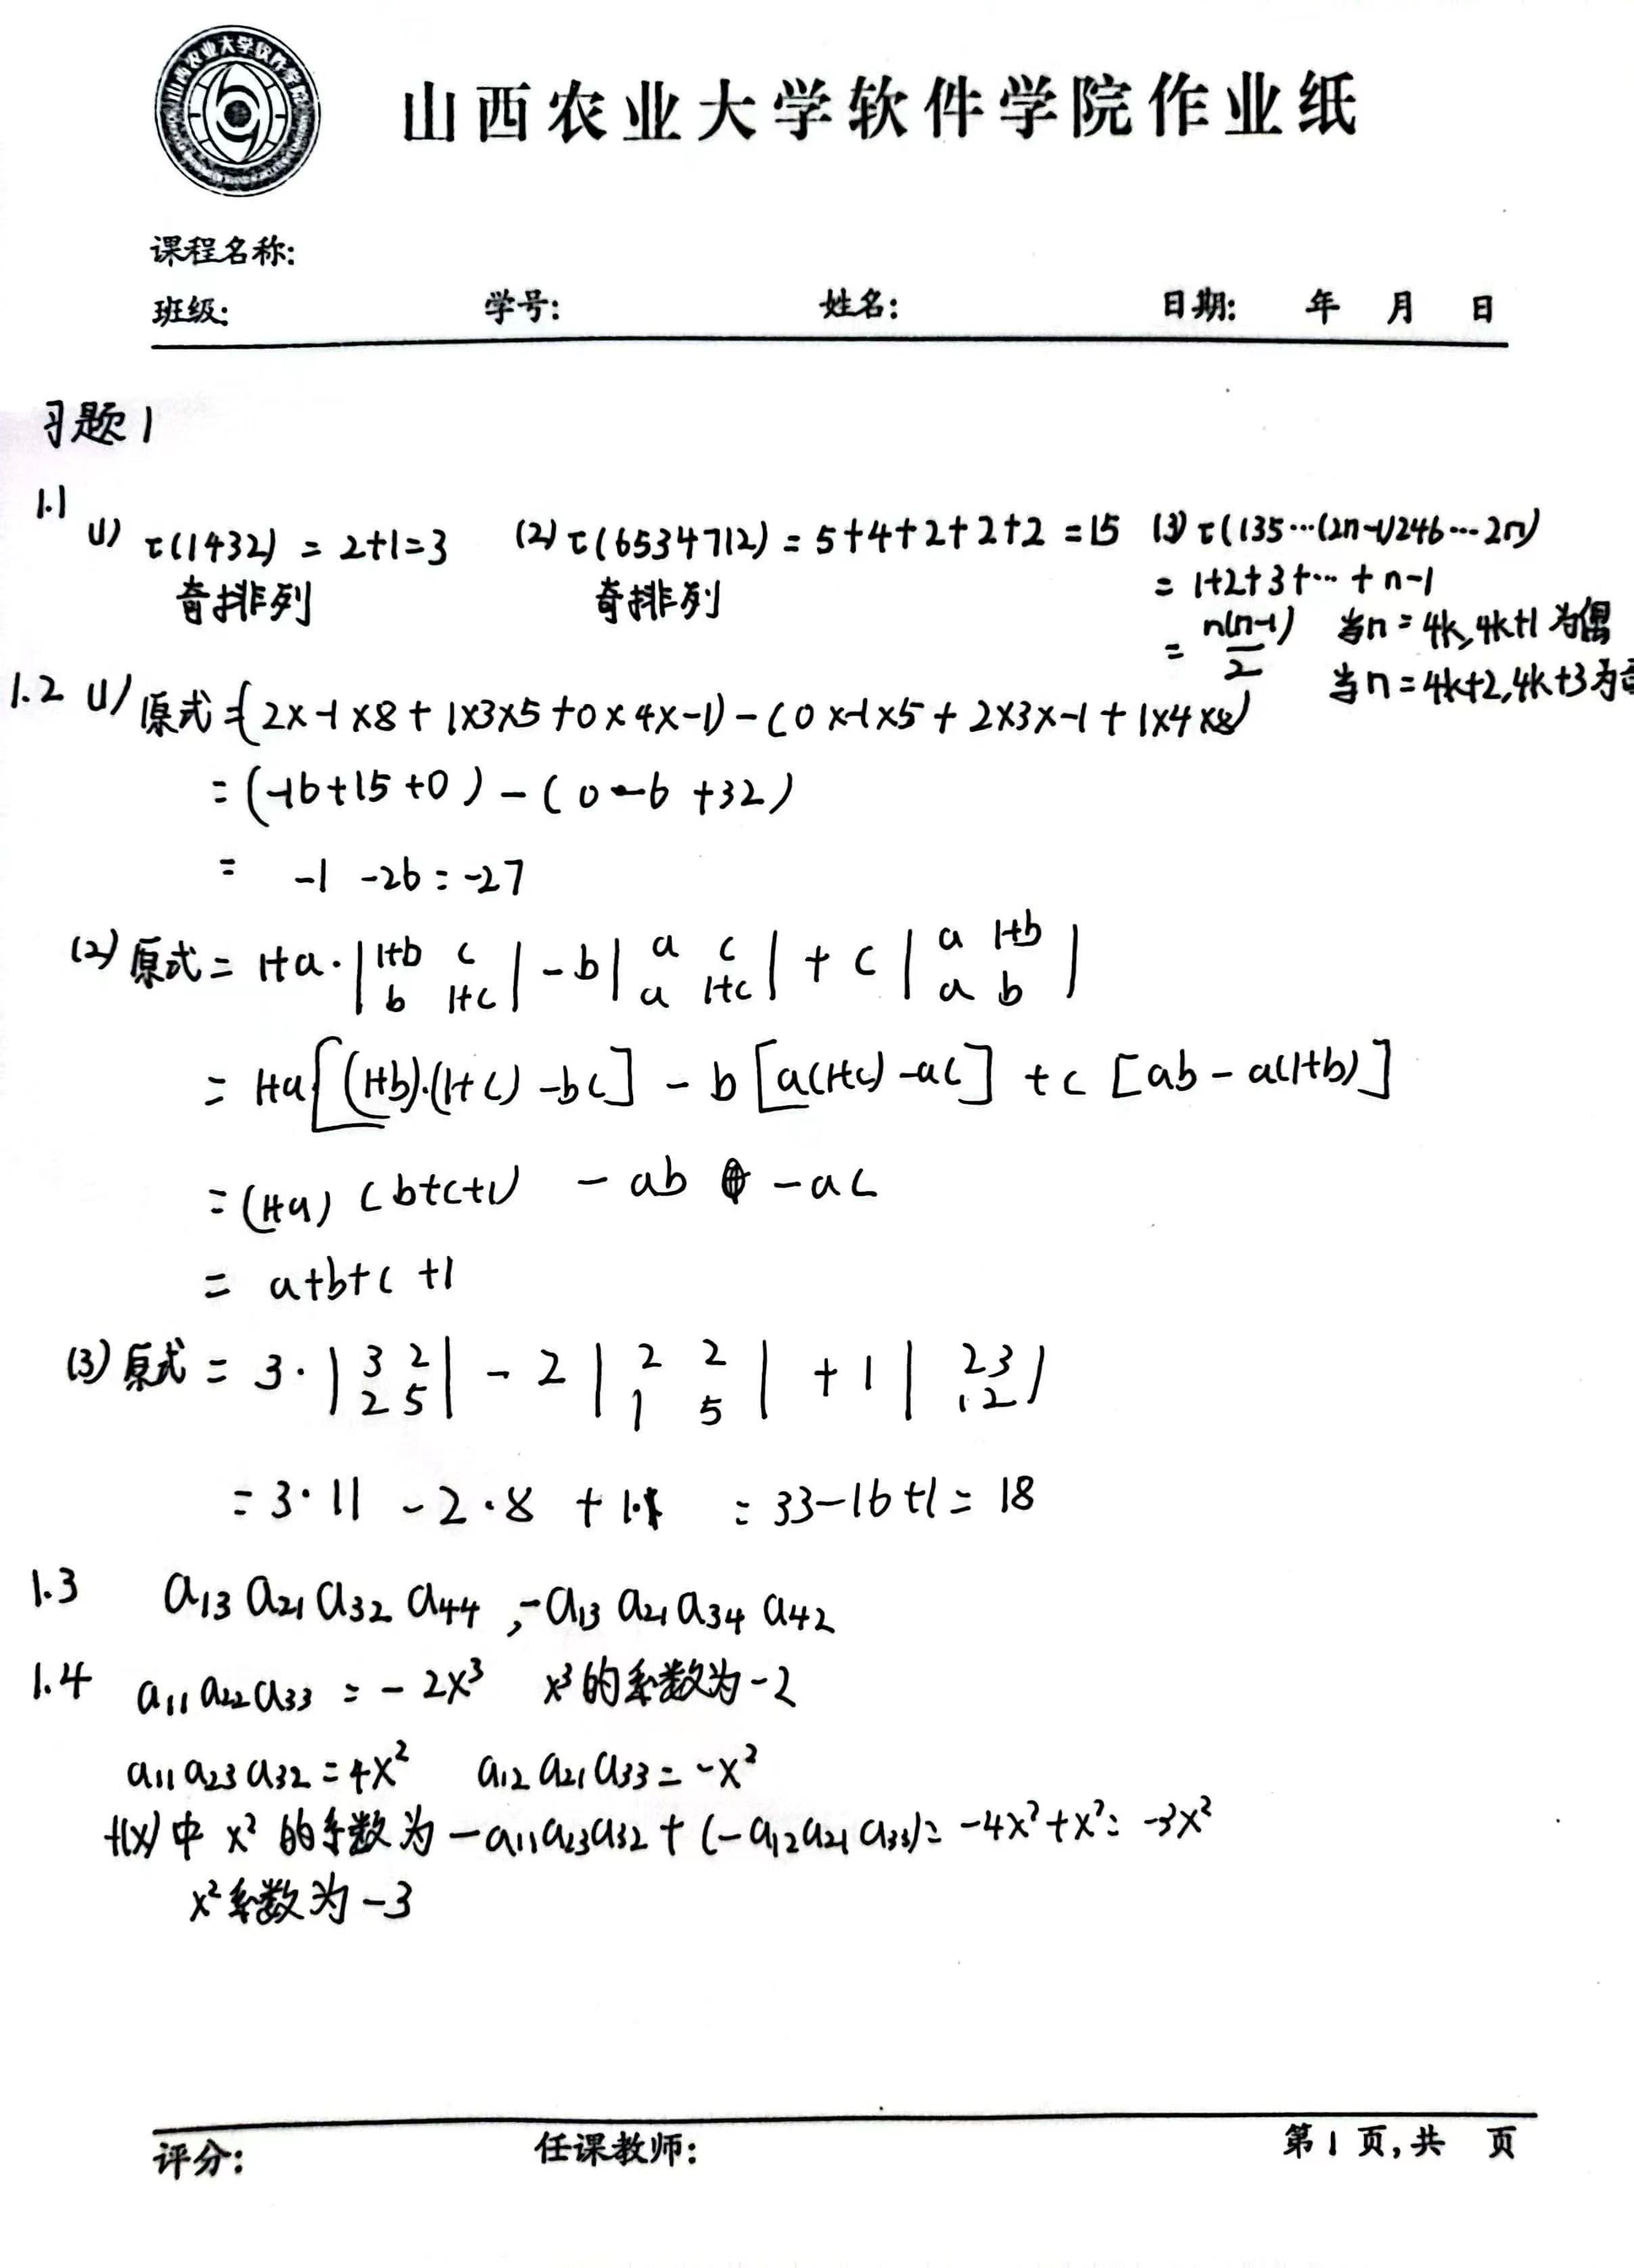 山西农业大学软件学院
山西农业大学软件学院作业纸
课程名称:
班级: 学号: 姓名: 日期: 年 月 日
习题1
1.1 (1) τ(1432) = 2+1=3 (2) τ(6534712) = 5+4+2+2+2 =15 (3) τ(135…(2n-1)246…2n)
奇排列 奇排列 = 1+2+3+…+n-1
= n(n-1)/2 当n = 4k,4k+1 为偶
当n = 4k+2,4k+3为奇
1.2 (1) 原式=(2×-1×8 + 1×3×5 +0×4×-1) - (0×-1×5 + 2×3×-1 + 1×4×8)
= (-16+15+0) - (0-6+32)
= -1 -26 = -27
(2) 原式 = 1+a · | 1+b c | - b | a c | + c | a 1+b |
| b 1+c | | a 1+c | | a b |
= 1+a[(1+b)·(1+c) -bc] - b [a(1+c) -ac] + c [ab - a(1+b)]
= (1+a) (b+c+1) - ab - ac
= a+b+c+1
(3) 原式 = 3 · | 3 2 | - 2 | 2 2 | + 1 | 2 3 |
| 2 5 | | 1 5 | | 1 2 |
= 3·11 - 2·8 + 1·1 = 33-16+1 = 18
1.3 a13 a21 a32 a44 , -a13 a21 a34 a42
1.4 a11 a22 a33 = - 2x³ x³的系数为-2
a11 a23 a32 = 4x² a12 a21 a33 = -x²
f(x)中 x² 的系数为 -a11a23a32 + (-a12a21a33) = -4x²+x² = -3x²
x²系数为 -3
评分: 任课教师: 第 1 页,共 页